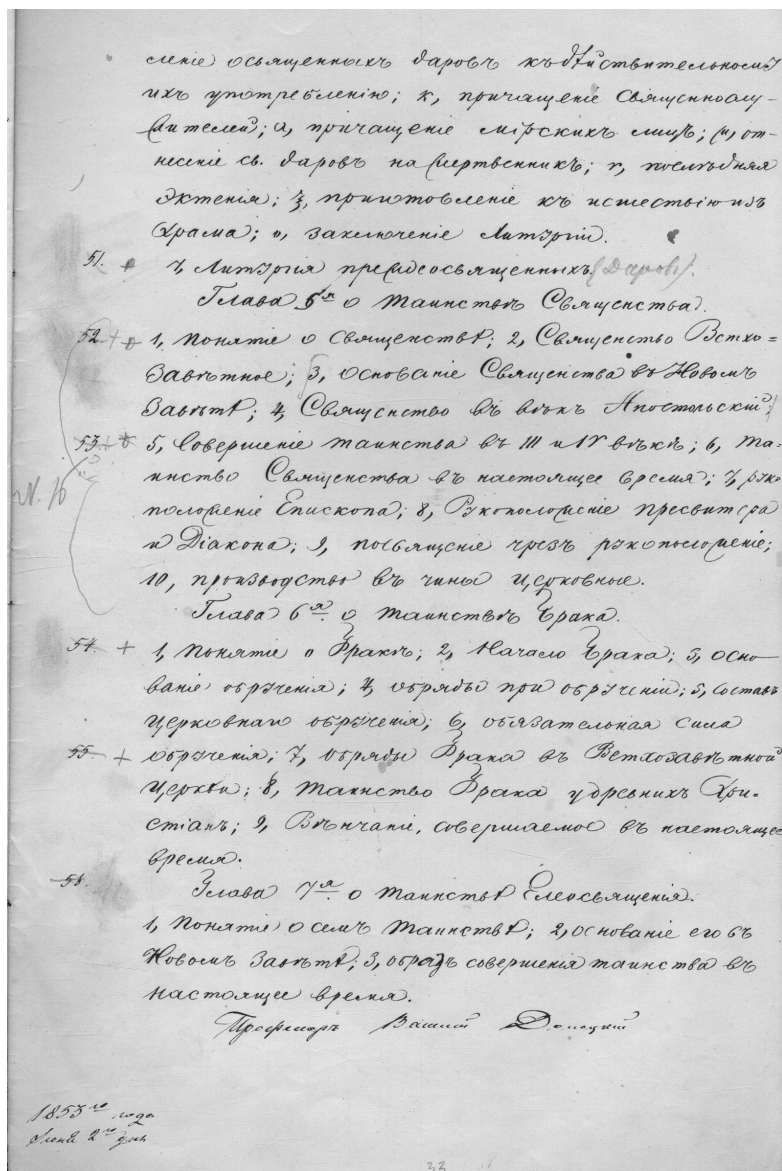 леніе освященныхъ даровъ къ дѣйствительному
ихъ употребленію; к, причащеніе Священнослу-
жителей; л, причащеніе мірскихъ лицъ; м, от-
несеніе св. даровъ на жертвенникъ; н, послѣдняя
эктенія; ѯ, приготовленіе къ исшествію изъ
Храма; о, заключеніе Литургіи.
51. Литургія преждеосвященныхъ (Даровъ).
Глава 5я о таинствѣ Священства.
52. + 1, Понятіе о священствѣ; 2, Священство Ветхо=
Завѣтное; 3, основаніе Священства въ Новомъ
Завѣтѣ; 4, Священство въ вѣкъ Апостольскій;
53. + 5, Совершеніе таинства въ III и IV вѣкѣ; 6, та-
инство Священства въ настоящее время; 7, руко
положеніе Епископа; 8, Рукоположеніе пресвитера
и Діакона; 9, посвященіе чрезъ рукоположеніе;
10, производство въ чины церковные.
Глава 6я о таинствѣ Брака.
54. + 1, Понятіе о Бракѣ; 2, Начало Брака; 3, осно-
ваніе обрученія; 4, обряды при обрученіи; 5, составъ
церковнаго обрученія; 6, обязательная сила
55. + обрученія; 7, обряды Брака въ Ветхозавѣтной
Церкви; 8, таинство Брака у древнихъ Хри-
стіанъ; 9, Вѣнчаніе, совершаемое въ настоящее
время.
Глава 7я о таинствѣ Елеосвященія.
1, Понятіе о семъ таинствѣ; 2, основаніе его въ
Новомъ Завѣтѣ; 3, образъ совершенія таинства въ
настоящее время.
Профессоръ Василій
1853го года
Іюня 2го дня